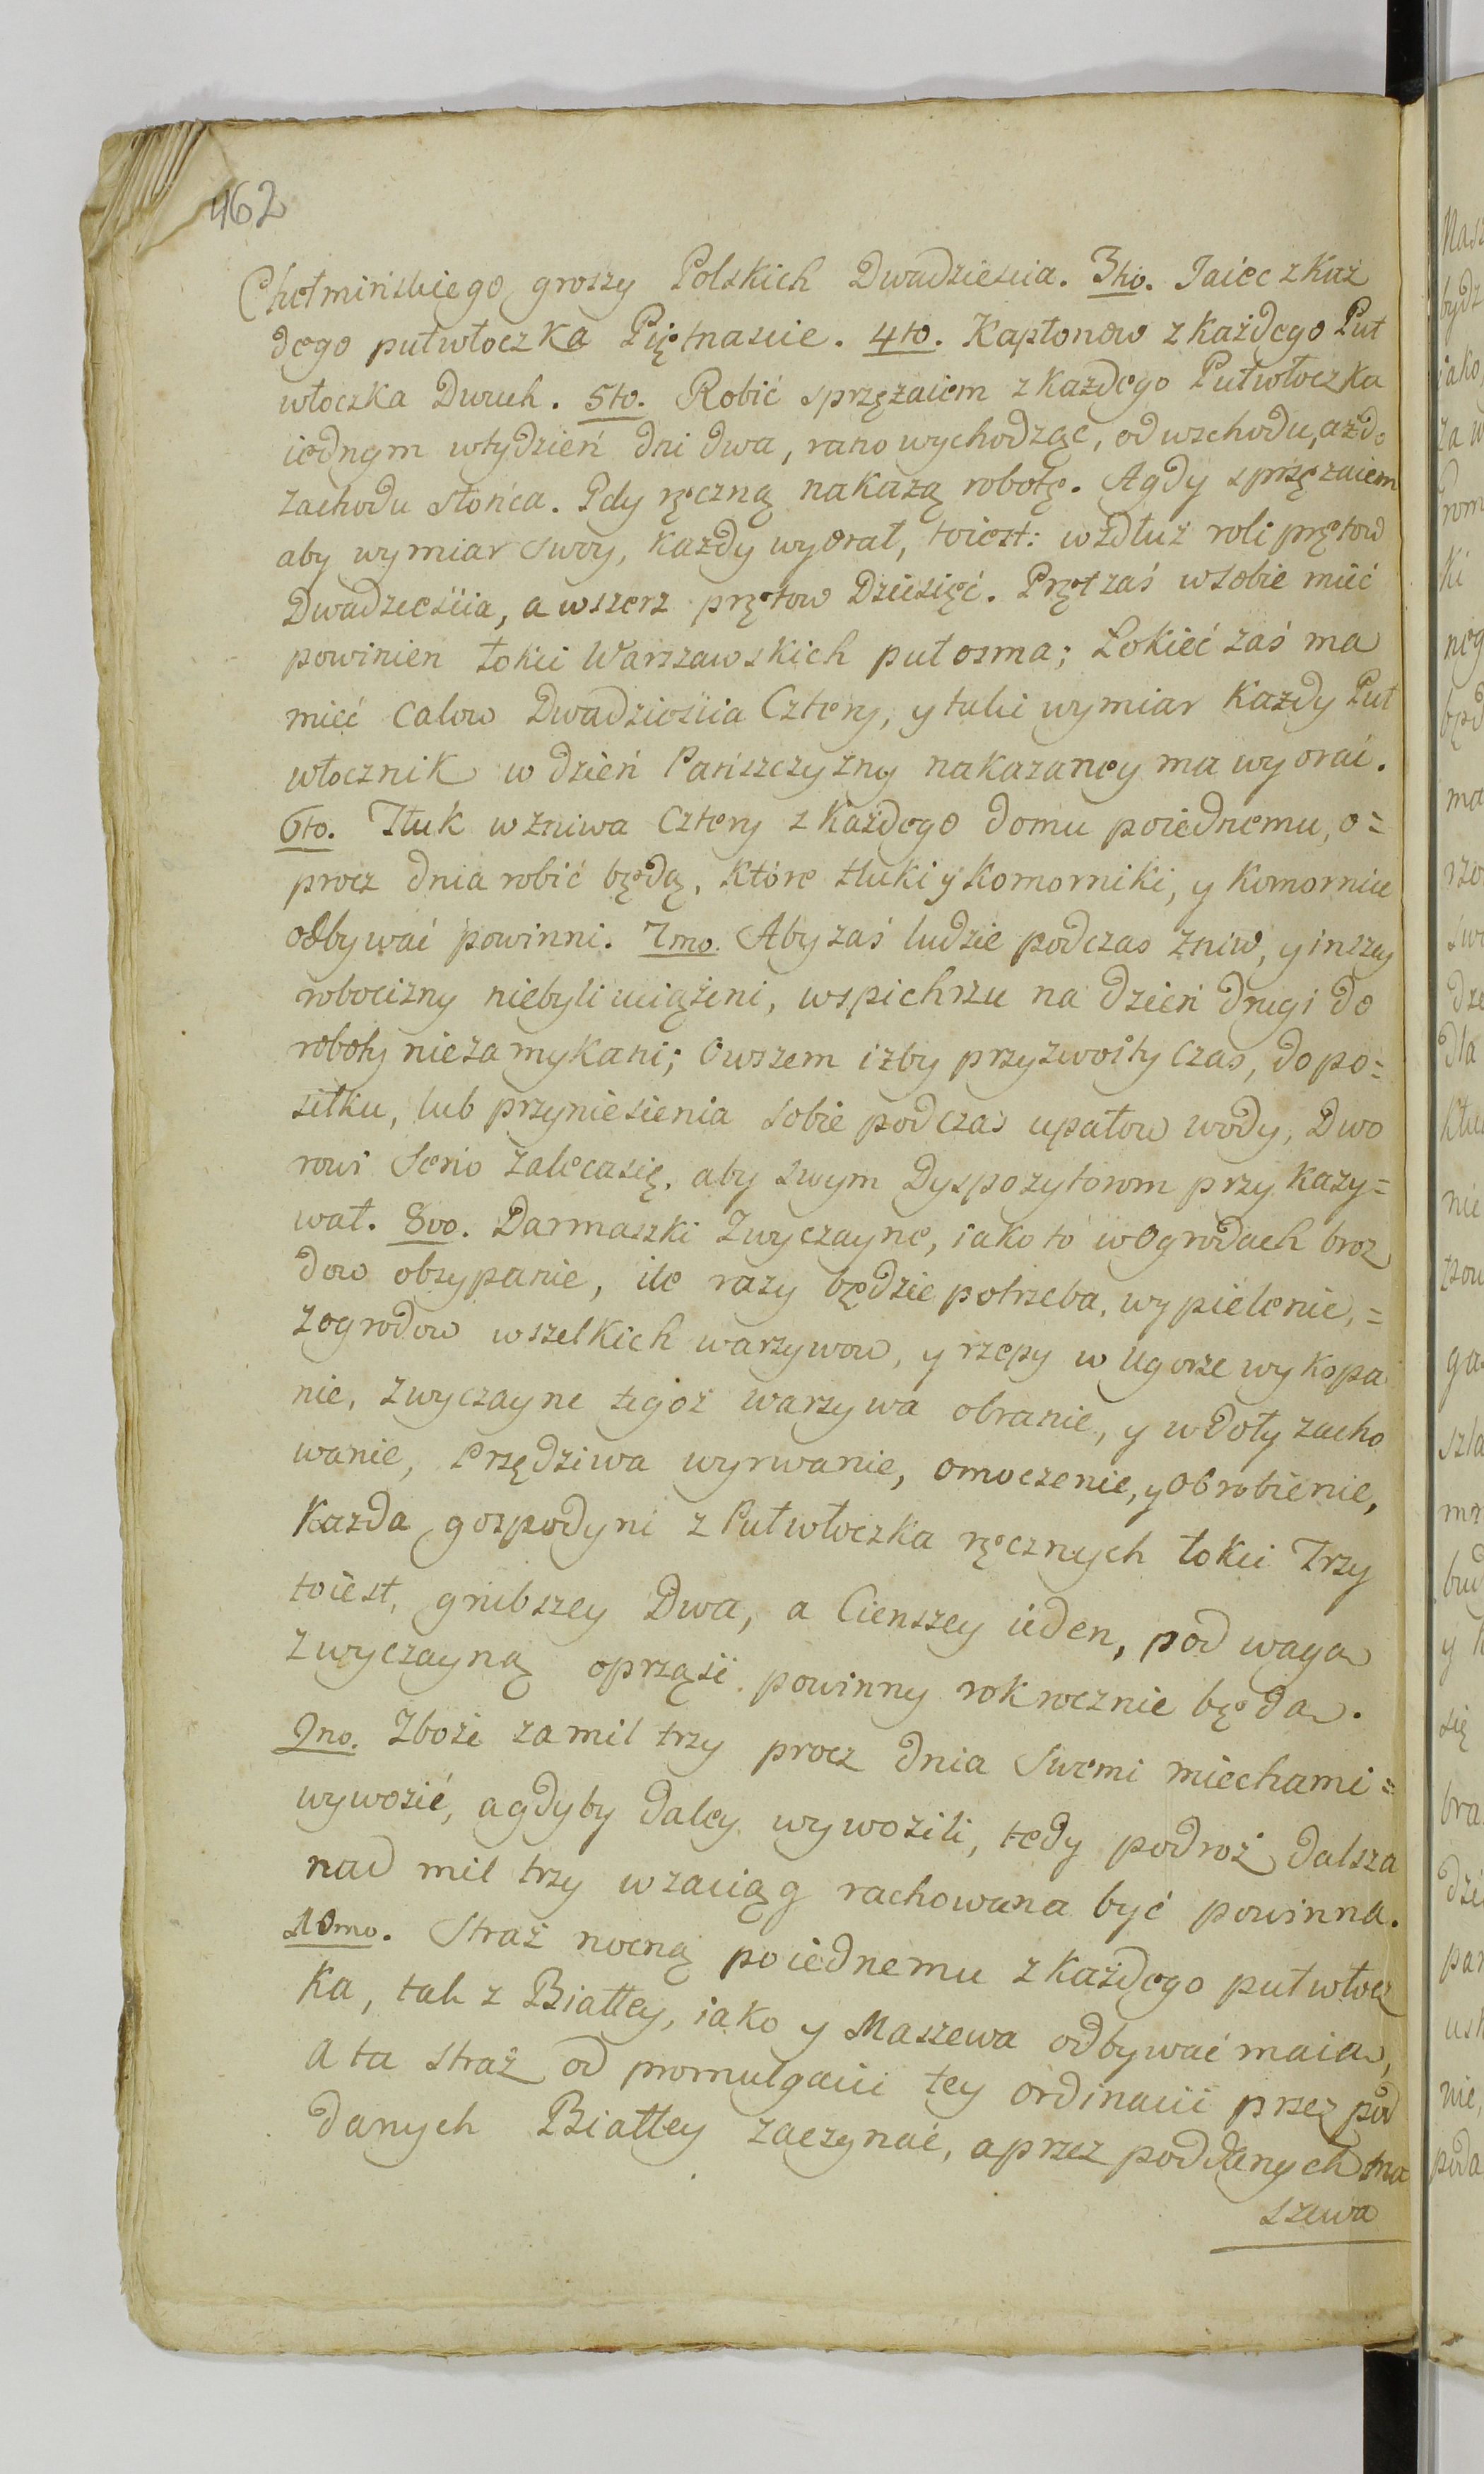 462
Chełmińskiego groszy Polskich Dwadziescia. 3tio. Jaiec z Każ
dego pułwłoczka Piętnascie. 4to. Kapłonow z każdego Puł
włoczka Dwuch. 5to. Robić sprzężaiem z każdego Pułwłoczka
iednym w tydzień dni dwa, rano wychodząc, od wschodu, aż do
zachodu słońca. Pdy ręczną nakażą robotę. A gdy sprzężaiem
aby wymiar swoy, każdy wyorał, toiest: wzdłuż roli prętow
Dwadziescia, a wszerz prętow Dziesięć. Pręt zaś w sobie mieć
powinien łokci Warszawskich puł osma; Łokieć zaś ma
mieć calow Dwadziescia Cztery, y taki wymiar Każdy Puł
włocznik w dzień Pańszczyzny nakazaney ma wyorać.
6to. Tłuk w żniwa Cztery z Każdego domu po iednemu, o=
procz dnia robić będą, które tłuki y Komorniki, y Komornice
odbywać powinni. 7mo. Aby zaś ludzie podczas żniw, y inszey
robocizny niebyli uciążeni, w spichrzu na dzień drugi do
roboty niezamykani; Owszem iżby przyzwoity czas, do po=
siłku, lub przyniesienia sobie podczas upałow wody, Dwo
rowi Serio zaleca się, aby swym Dyspozytorom przykazy=
wał. 8vo. Darmaszki Zwyczayne, iako to w Ogrodach broz
dow obsypanie, ile razy będzie potrzeba, wypielenie,=
z ogrodow wszelkich warzywow, y rzepy w Ugorze wykopa
nie, zwyczayne tegoż warzywa obranie, y w doły zacho
wanie, Przędziwa wyrwanie, omoczenie, y Obrobienie,
Każda gospodyni z Pułwłoczka ręcznych łokci Trzy
toiest, grubszey Dwa, a Cienszey ieden, pod wagą
zwyczayną oprząść powinny rok rocznie będą.
9no. Zboże za mil trzy procz dnia Swemi miechami=
wywozić, a gdyby daley wywozili, tedy podroż dalsza
nad mil trzy w zaciąg rachowana być powinna.
10mo. Straż nocną po iednemu z Każdego pułwłocz
ka, tak z Białley, iako y Maszewa odbywać maią,
a ta straż od promulgacii tey ordinacii przez pod
danych Białley zaczynać, a przez poddanych Ma
szewa